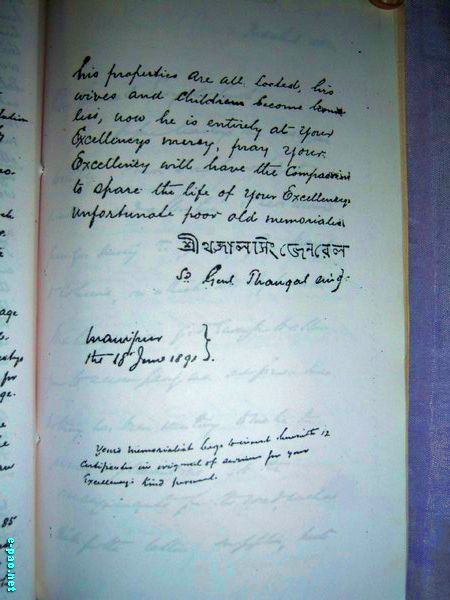 his properties are all looted, his
wives and children become home
less, now he is entirely at your
Excellencys mercy, pray your
Excellency will have the Compassion
to spare the life of your Excellencys
unfortunate poor old memorialist
শ্রীথঙ্গালসিং জেনরেল
Sd. Genl. Thangal Sing
Manipur
the 18th June 1891
Your memorialist begs to submit herewith 12
Certificates in original of services for your
Excellency's kind perusal.
85
e-pao.net